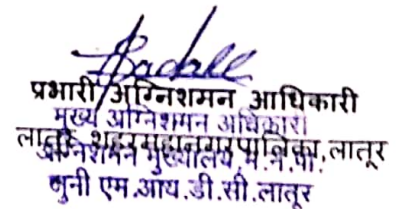 प्रभारी अग्निशमन आधिकारी
मुख्य अग्निशमन अधिकारी
लातूर शहर महानगरपालिका, लातूर
अग्निशमन मुख्यालय, म.न.पा.
जुनी एम.आय.डी.सी.लातूर